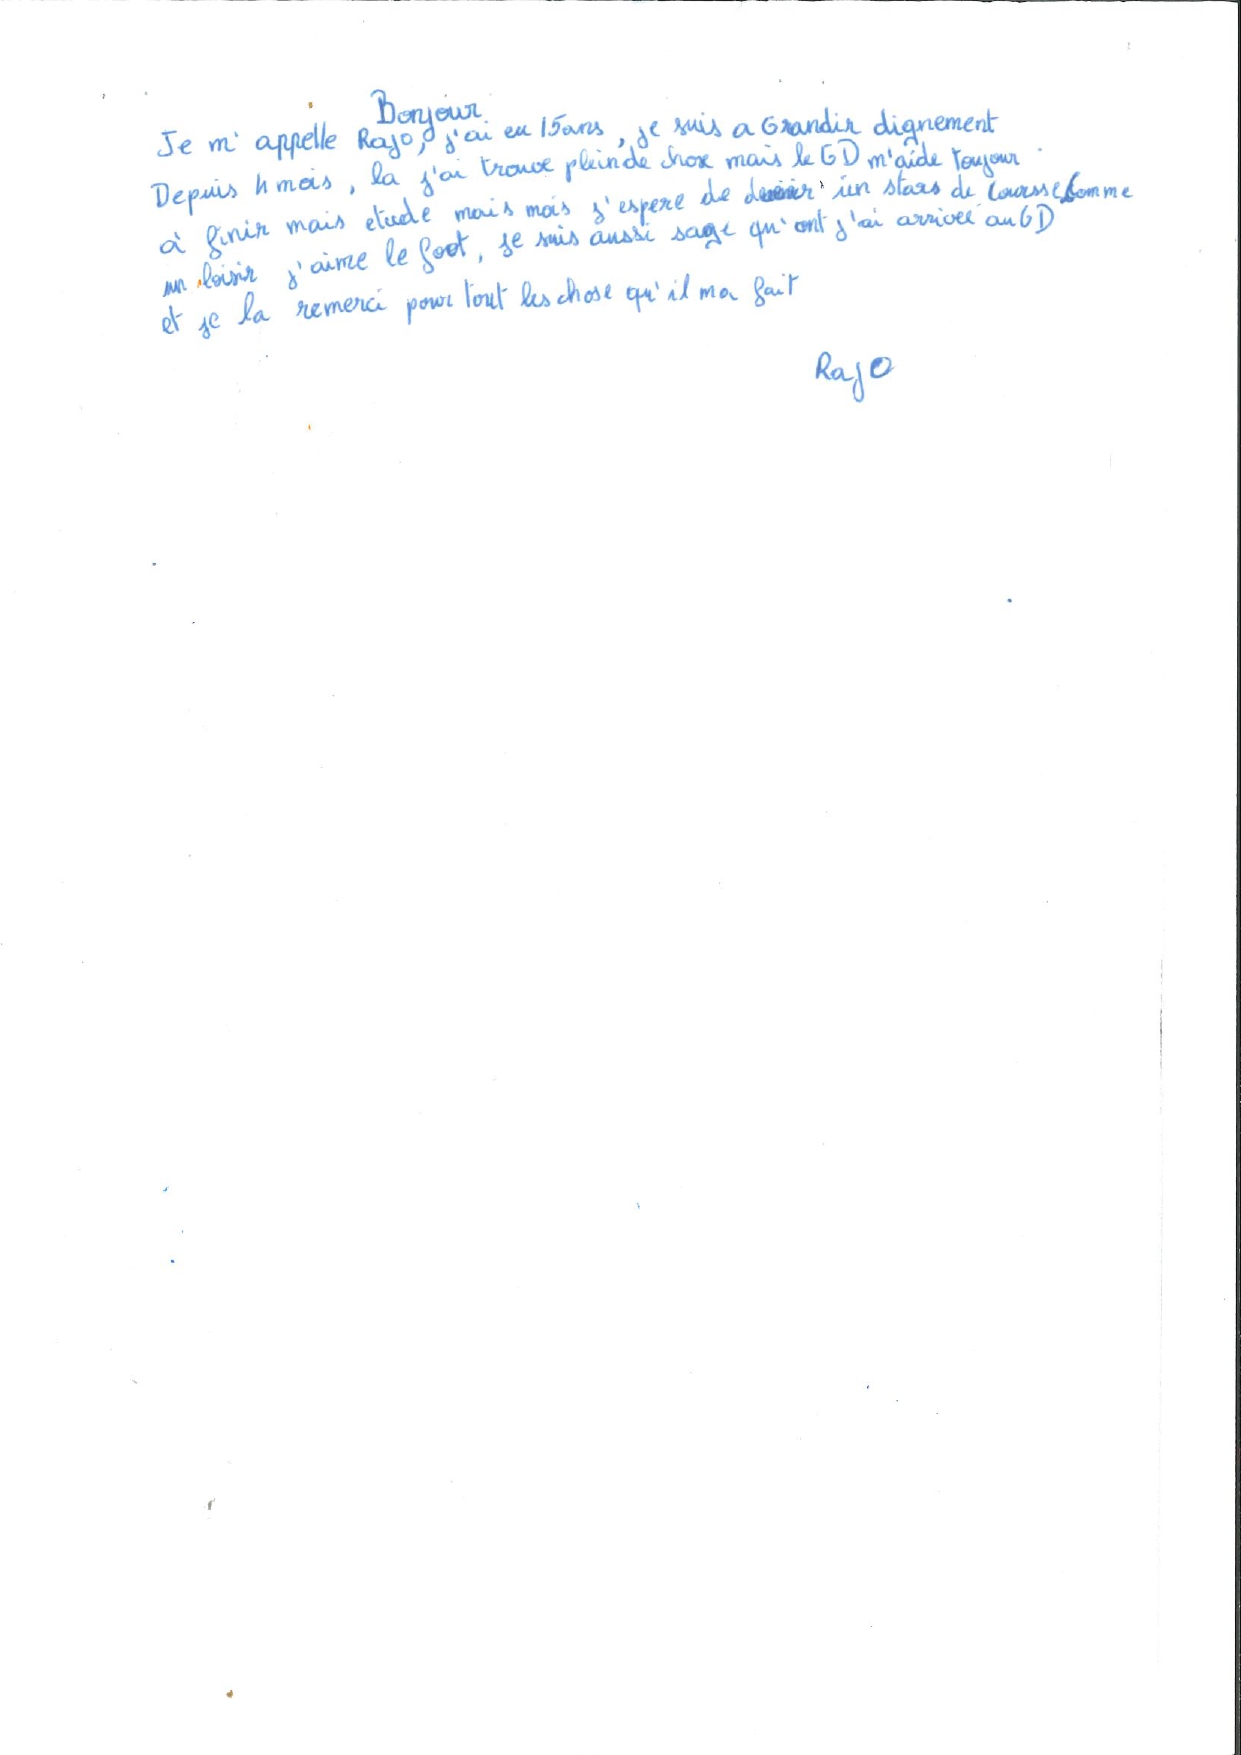 Bonjour
Je m'appelle Rajo, j'ai eu 15 ans, je suis a Grandir dignement
Depuis 4 mois, la j'ai trouve plein de chose mais le GD m'aide toujour
à finir mais etude mais mois j'espere de devenir un stars de courssе, comme
un loisir j'aime le foot, je suis aussi sage qu'ont j'ai arrivee au GD
et je la remerci pour tout les chose qu'il ma fait
Rajo